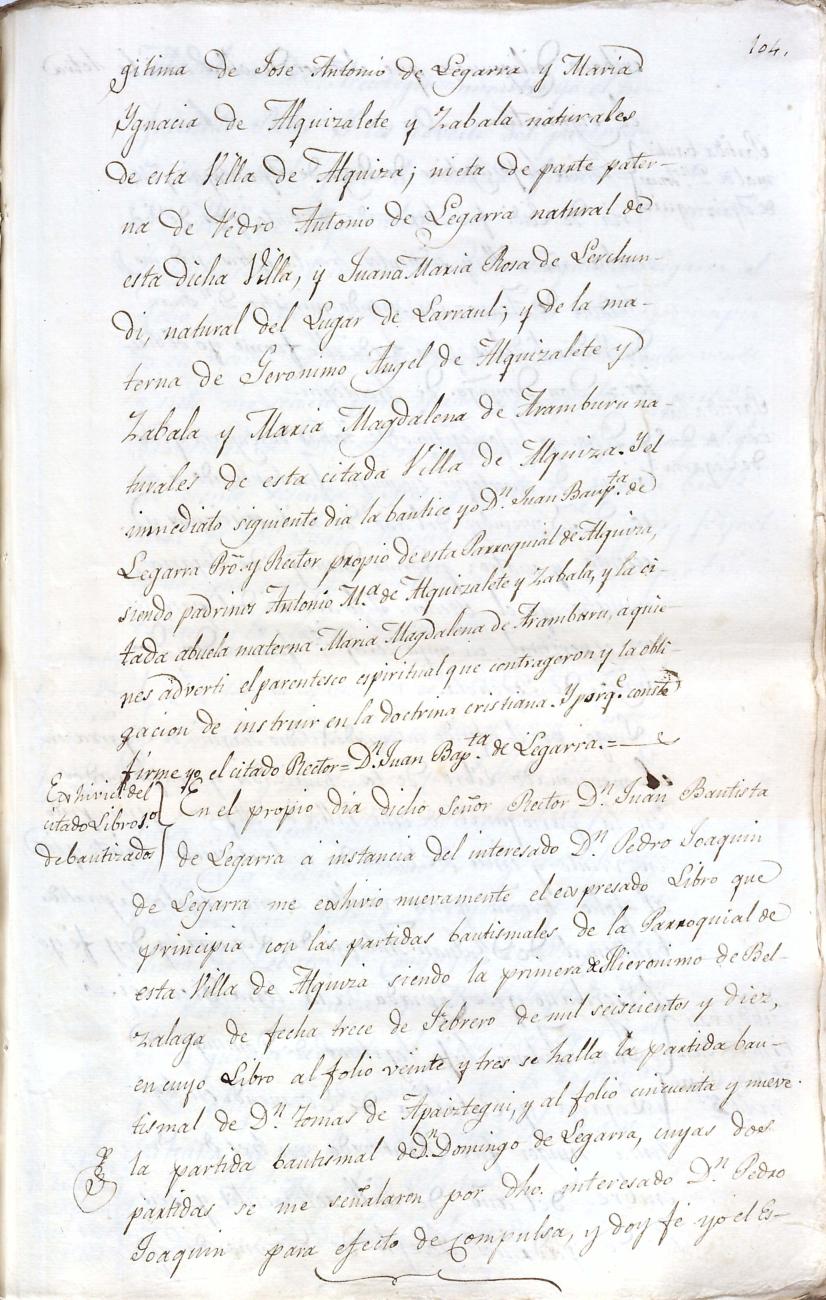 104.
gitima de Jose Antonio de Legarra y Maria
Ygnacia de Alquizalete y Zabala naturales
de esta Villa de Alquiza; nieta de parte pater-
na de Pedro Antonio de Legarra natural de
esta dicha Villa, y Juana Maria Rosa de Lerchun-
di, natural del Lugar de Larraul; y de la ma-
terna de Geronimo Angel de Alquizalete y
Zabala y Maria Magdalena de Aramburu na-
turales de esta citada Villa de Alquiza. Y el
immediato siguiente dia la bautice yo Dn. Juan Baupta. de
Legarra Pro. y Rector propio de esta Parroquial de Alquiza,
siendo padrinos Antonio Ma. de Alquizalete y Zabala, y la ci-
tada abuela materna Maria Magdalena de Aramburu, a quie-
nes adverti el parentesco espiritual que contrageron y la obli-
gacion de instruir en la doctrina cristiana. Y porqe. conste
firme yo el citado Rector = Dn. Juan Bapta. de Legarra. =
Exhivicn. del
citado Libro 1o.
de bautizados
En el propio dia dicho Señor Rector Dn. Juan Bautista
de Legarra a instancia del interesado Dn. Pedro Joaquin
de Legarra me exhivio nuevamente el expresado Libro que
principia con las partidas bautismales de la Parroquial de
esta Villa de Alquiza siendo la primera de Hieronimo de Bel-
zalaga de fecha trece de Febrero de mil seiscientos y diez,
en cuyo Libro al folio veinte y tres se halla la partida bau-
tismal de Dn. Tomas de Apaiztegui, y al folio cincuenta y nueve
la partida bautismal de Dn. Domingo de Legarra, cuyas dos
partidas se me señalaron por dho. interesado Dn. Pedro
Joaquin para efecto de compulsa, y doy fe yo el Es-